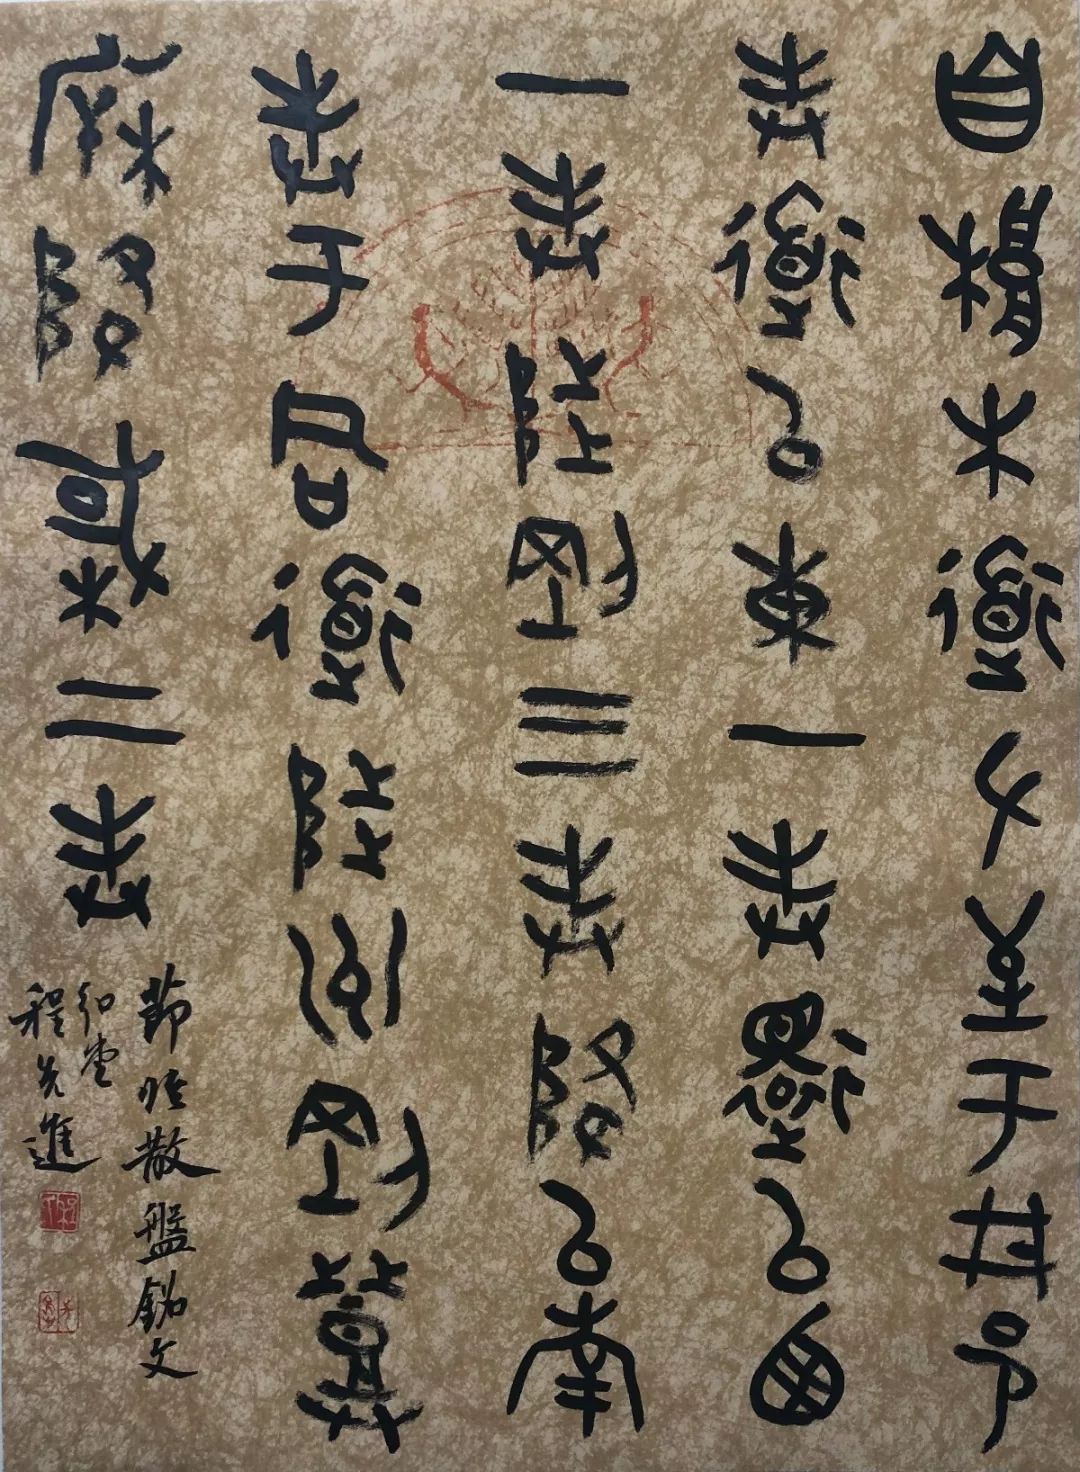 自桹木道左至于井邑
封道以東一封還以西
一封陟剛三封降以南
封于同道陟州剛登
柝降棫二封
節臨散盤銘文
程先進